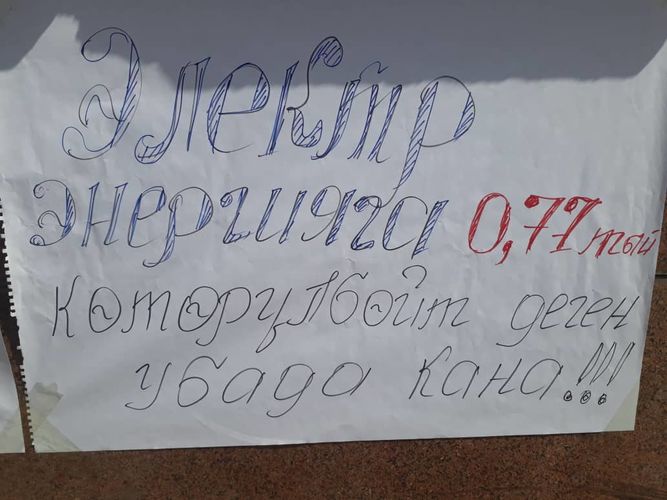 Электр
энергияга 0,77тый
которулбойт деген
убада кана!!!